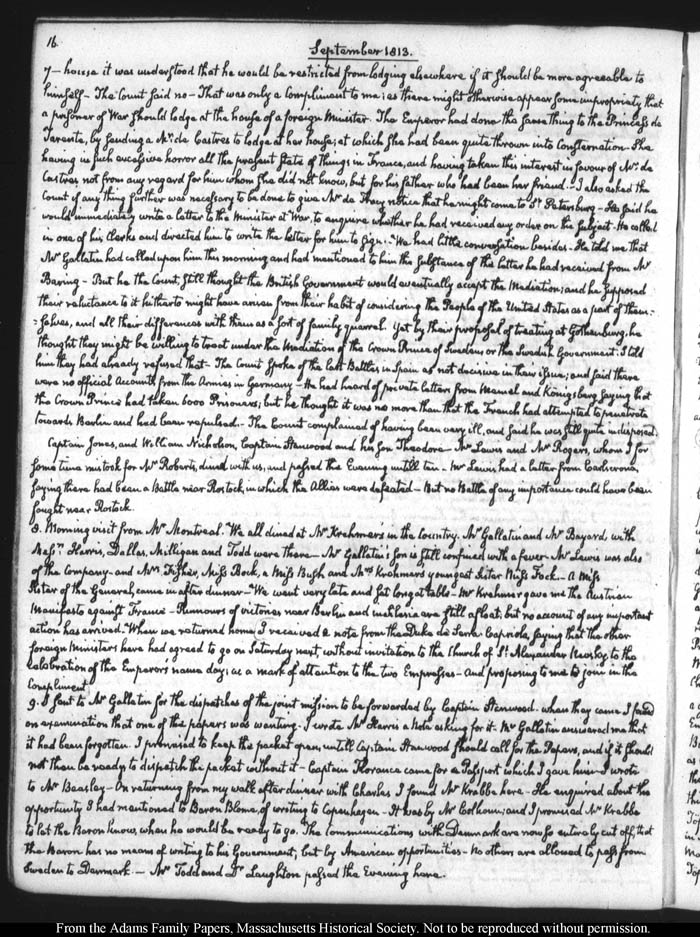 16.
September 1813.
7 — house it was understood that he would be restricted from lodging elsewhere if it should be more agreeable to
himself — The Count said no — That was only a compliment to me; as there might otherwise appear some impropriety that
a prisoner of War should lodge at the house of a foreign Minister. The Emperor had done the same thing to the Princess de
Tarente, by sending a Mr. de Castres to lodge at her house; at which she had been quite thrown into Consternation. She
having in such excessive horror all the present State of things in France, and having taken this interest in favour of Mr. de
Castres, not from any regard for him whom she did not know, but for his father who had been her friend. — I also asked the
Count if any thing further was necessary to be done to give Mr. de Thury notice that he might come to St. Petersburg — He said he
would immediately write a letter to the Minister of War, to enquire whether he had received any order on the subject. He called
in one of his Clerks and directed him to write the letter for him to sign. — We had little conversation besides — He told me that
Mr. Gallatin had called upon him this morning and had mentioned to him the substance of the letter he had received from Mr.
Baring — But he the Count, still thought the British Government would eventually accept the Mediation; and he supposed
their reluctance to it hitherto might have arisen from their habit of considering the People of the United States as a part of them-
=selves, and all their differences with them as a sort of family quarrel. Yet by their proposal of treating at Gothenburg, he
thought they might be willing to treat under the Mediation of the Crown Prince of Sweden, or the Swedish Government. I told
him they had already refused that — The Count spoke of the last Battles in Spain as not decisive in their issue; and said there
were no official Accounts from the Armies in Germany — He had heard of private letters from Memel and Königsberg saying that
the Crown Prince had taken 6000 Prisoners; but he thought it was no more than that the French had attempted to penetrate
towards Berlin and had been repulsed. — The Count complained of having been very ill, and said he was still quite indisposed.
Captain Jones, and William Nicholson, Captain Stanwood and his Son Theodore — Mr. Lewis and Mr. Rogers, whom I for
some time mistook for Mr. Roberts, dined with us, and passed the Evening untill ten. — Mr. Lewis had a letter from Carlscrona,
saying there had been a Battle near Rostock, in which the Allies were defeated — But no Battle of any importance could have been
fought near Rostock.
8. Morning visit from Mr. Montreal. We all dined at Mr. Krehmer's in the Country. Mr. Gallatin and Mr. Bayard, with
Messrs. Harris, Dallas, Milligan and Todd were there — Mr. Gallatin's son is still confined with a fever. Mr. Lewis was also
of the Company — and Mrs. Fisher, Miss Bock, a Miss Bush and Mrs. Krehmer's youngest Sister Miss Fock. — A Miss
Sister of the General, came in after dinner — We went very late and sat long at table — Mr. Krehmer gave me the Austrian
Manifesto against France — Rumours of victories near Berlin and in Silesia are still afloat; but no account of any important
action has arrived. — When we returned home, I received a note from the Duke de Serra Capriola, saying that the other
foreign Ministers have had agreed to go on Saturday next, without invitation to the Church of St. Alexander Newsky, to the
celebration of the Emperors name day; as a mark of attention to the two Empresses — and proposing to me to join in the
Compliment.
9. I sent to Mr. Gallatin for the dispatches of the joint mission to be forwarded by Captain Stanwood. when they came I found
on examination that one of the papers was wanting. I wrote Mr. Harris a Note asking for it. Mr. Gallatin answered me that
it had been forgotten. I promised to keep the packet open, untill Captain Stanwood should call for the Papers, and if it should
not then be ready to dispatch the packet without it — Captain Florance came for a Passport which I gave him — I wrote
to Mr. Beasley — On returning from my walk after dinner with Charles I found Mr. Krabbe here — He enquired about the
opportunity I had mentioned to Baron Blome, of writing to Copenhagen — It was by Mr. Colhoun; and I promised Mr. Krabbe
to let the Baron know, when he would be ready to go. The communications with Denmark are now so entirely cut off, that
the Baron has no means of writing to his Government, but by American opportunities — No others are allowed to pass from
Sweden to Denmark. — Mr. Todd and Dr. Laughton passed the Evening here.
From the Adams Family Papers, Massachusetts Historical Society. Not to be reproduced without permission.